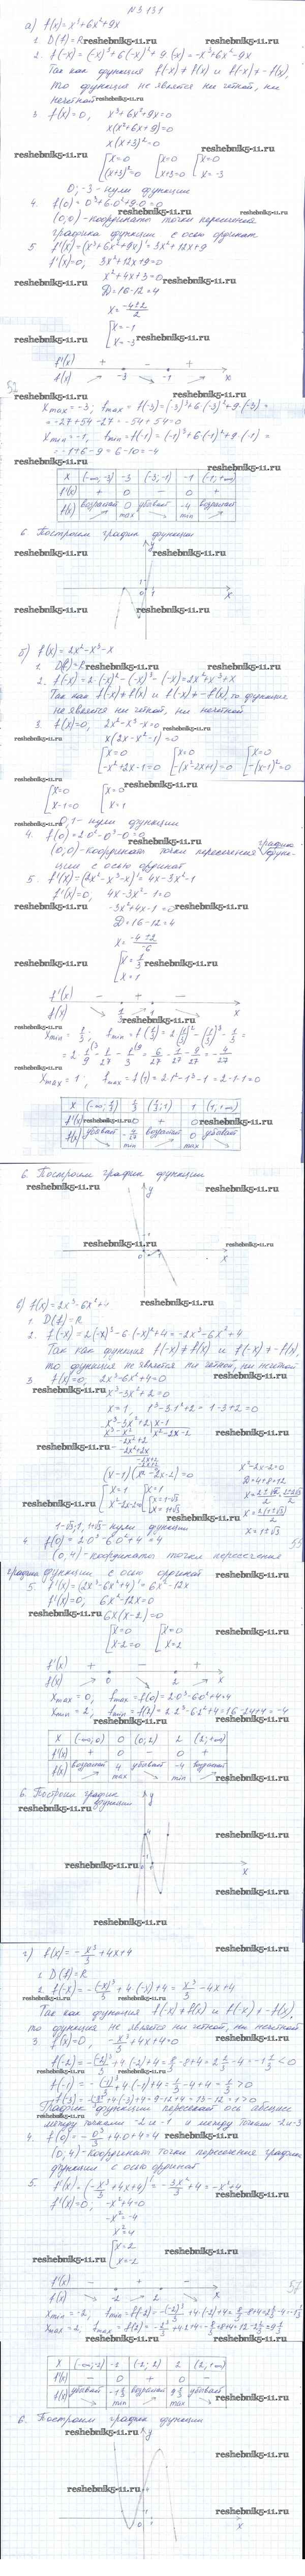 N 3 131
а) f(x) = x³+6x²+9x
1. D(f)=R reshebnik5-11.ru reshebnik5-11.ru
2. f(-x) = (-x)³+6(-x)²+9·(-x) = -x³+6x²-9x
Так как функция f(-x)≠f(x) и f(-x)≠-f(x),
то функция не является ни четной, ни
нечетной
3. f(x)=0, x³+6x²+9x=0
x(x²+6x+9)=0
x(x+3)²=0
x=0 x=0 x=0
(x+3)²=0 x+3=0 x=-3
0; -3 - нули функции
4. f(0)=0³+6·0²+9·0=0
(0;0) - координаты точки пересечения
графика функции с осью ординат
5. f'(x)=(x³+6x²+9x)'=3x²+12x+9
f'(x)=0, 3x²+12x+9=0
x²+4x+3=0
D=16-12=4
x=(-4±2)/2
x=-1
x=-3
f'(x) + - +
f(x) -3 -1 x
52
x max=-3, f max=f(-3)=(-3)³+6(-3)²+9·(-3)=
=-27+54-27=-54+54=0
x min=-1, f min=f(-1)=(-1)³+6(-1)²+9(-1)=
=-1+6-9=6-10=-4
x (-∞;-3) -3 (-3;-1) -1 (-1;+∞)
f'(x) + 0 - 0 +
f(x) возрастает 0 max убывает -4 min возрастает
6. Построим график функции
б) f(x)=2x²-x³-x
1. D(f)=R
2. f(-x)=2·(-x)²-(-x)³-(-x)=2x²+x³+x
Так как f(-x)≠f(x) и f(-x)≠-f(x), то функция
не является ни четной, ни нечетной
3. f(x)=0, 2x²-x³-x=0
x(2x-x²-1)=0
x=0 x=0 x=0
-x²+2x-1=0 -(x²-2x+1)=0 -(x-1)²=0
x=0 x=0
x-1=0 x=1
0; 1 - нули функции
4. f(0)=2·0²-0³-0=0
(0;0) - координаты точки пересечения графика функ-
ции с осью ординат
5. f'(x)=(2x²-x³-x)'=4x-3x²-1
f'(x)=0, 4x-3x²-1=0
-3x²+4x-1=0
D=16-12=4
x=(-4±2)/-6
x=1/3
x=1
f'(x) - + -
f(x) 1/3 1 x
x min=1/3, f min=f(1/3)=2(1/3)²-(1/3)³-1/3=
=2·1/9-1/27-1/3=6/27-1/27-9/27=-4/27
x max=1, f max=f(1)=2·1²-1³-1=2-1-1=0
x (-∞;1/3) 1/3 (1/3;1) 1 (1;+∞)
f'(x) - 0 + 0 -
f(x) убывает -4/27 min возрастает 0 max убывает
6. Построим график функции
в) f(x)=2x³-6x²+4
1. D(f)=R
2. f(-x)=2(-x)³-6(-x)²+4=-2x³-6x²+4
Так как функция f(-x)≠f(x) и f(-x)≠-f(x),
то функция не является ни четной, ни нечетной
3. f(x)=0, 2x³-6x²+4=0
x³-3x²+2=0
x=1, 1³-3·1²+2=1-3+2=0
(x-1)(x²-2x-2)=0
x²-2x-2=0
D=4+8=12
x=1±√3
1-√3; 1; 1+√3 - нули функции
4. f(0)=2·0³-6·0²+4=4
(0;4) - координаты точки пересечения
графика функции с осью ординат
5. f'(x)=(2x³-6x²+4)'=6x²-12x
f'(x)=0, 6x²-12x=0
6x(x-2)=0
x=0 x=0
x-2=0 x=2
f'(x) + - +
f(x) 0 2 x
x max=0, f max=f(0)=2·0³-6·0²+4=4
x min=2, f min=f(2)=2·2³-6·2²+4=16-24+4=-4
x (-∞;0) 0 (0;2) 2 (2;+∞)
f'(x) + 0 - 0 +
f(x) возрастает 4 max убывает -4 min возрастает
6. Построим график функции
г) f(x)=-x³/3+4x+4
1. D(f)=R
2. f(-x)=-(-x)³/3+4(-x)+4=x³/3-4x+4
Так как функция f(-x)≠f(x) и f(-x)≠-f(x),
то функция не является ни четной, ни нечетной
3. f(x)=0, -x³/3+4x+4=0
График функции пересекает ось абсцисс
между точками -2 и -1 и между точками
4. f(0)=-0³/3+4·0+4=4
(0;4) - координаты точки пересечения графика
функции с осью ординат
5. f'(x)=(-x³/3+4x+4)'=-3x²/3+4=-x²+4
f'(x)=0, -x²+4=0
-x²=-4
x²=4
x=2
x=-2
f'(x) - + -
f(x) -2 2 x
57
x (-∞;-2) -2 (-2;2) 2 (2;+∞)
f'(x) - 0 + 0 -
f(x) убывает -1 1/3 min возрастает 9 1/3 max убывает
6. Построим график функции